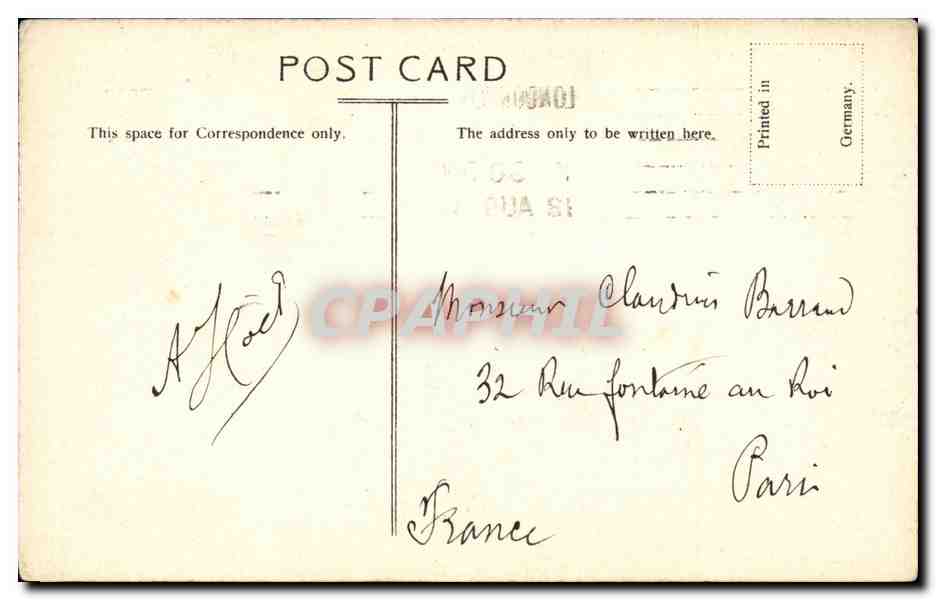 POST CARD
This space for Correspondence only.
The address only to be written here.
Printed in
Germany.
LONDON
30
13 AUG
CPAPHIL
A Noël
Monsieur Claudius Barraud
32 Rue fontaine au Roi
Paris
France